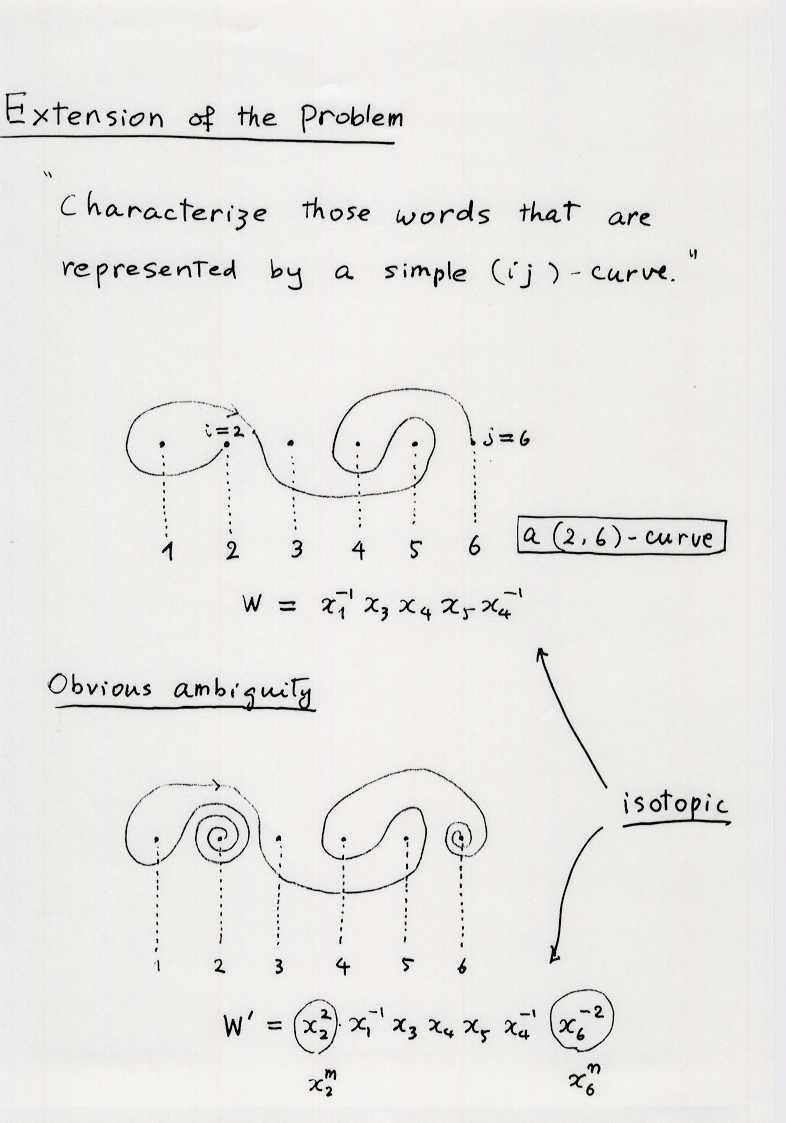 Extension of the Problem
"Characterize those words that are
represented by a simple (ij)-curve."
i=2
j=6
1 2 3 4 5 6
a (2,6)-curve
W = x₁⁻¹ x₃ x₄ x₅ x₄⁻¹
Obvious ambiguity
isotopic
1 2 3 4 5 6
W' = x₂² · x₁⁻¹ x₃ x₄ x₅ x₄⁻¹ x₆⁻²
x₂ᵐ x₆ⁿ